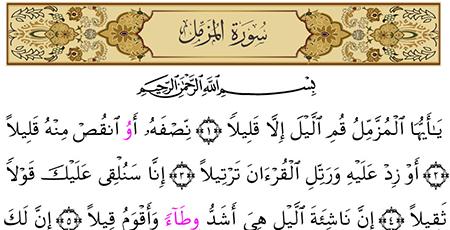 سُورَةُ المُزَّمِّل
بِسْمِ اللَّهِ الرَّحْمَٰنِ الرَّحِيمِ
يَٰأَيُّهَا اَلْمُزَّمِّلُ قُمِ اِلَّيْلَ إِلَّا قَلِيلاً ﴿١﴾ نِّصْفَهُۥ أَوُ اُنقُصْ مِنْهُ قَلِيلاً
﴿٢﴾ أَوْ زِدْ عَلَيْهِ وَرَتِّلِ اِلْقُرْءَانَ تَرْتِيلاً ﴿٣﴾ إِنَّا سَنُلْقِى عَلَيْكَ قَوْلاً
ثَقِيلاً ﴿٤﴾ إِنَّ نَاشِئَةَ اَلَّيْلِ هِىَ أَشَدُّ وِطَآءً وَأَقْوَمُ قِيلاً ﴿٥﴾ إِنَّ لَكَ